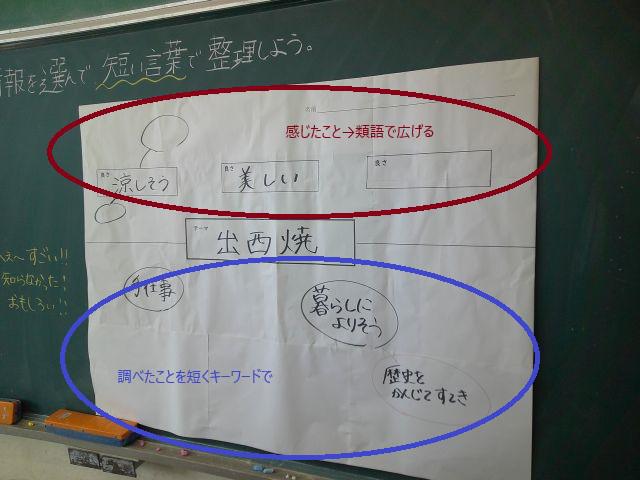 報を選んで短い言葉で整理しよう。
名前
感じたこと→類語で広げる
良さ
涼しそう
良さ
美しい
良さ
テーマ
出西焼
へぇ～すごい!!
知らなかった!
おもしろい!!
手仕事
暮らしに
よりそう
調べたことを短くキーワードで
歴史を
かんじてすてき